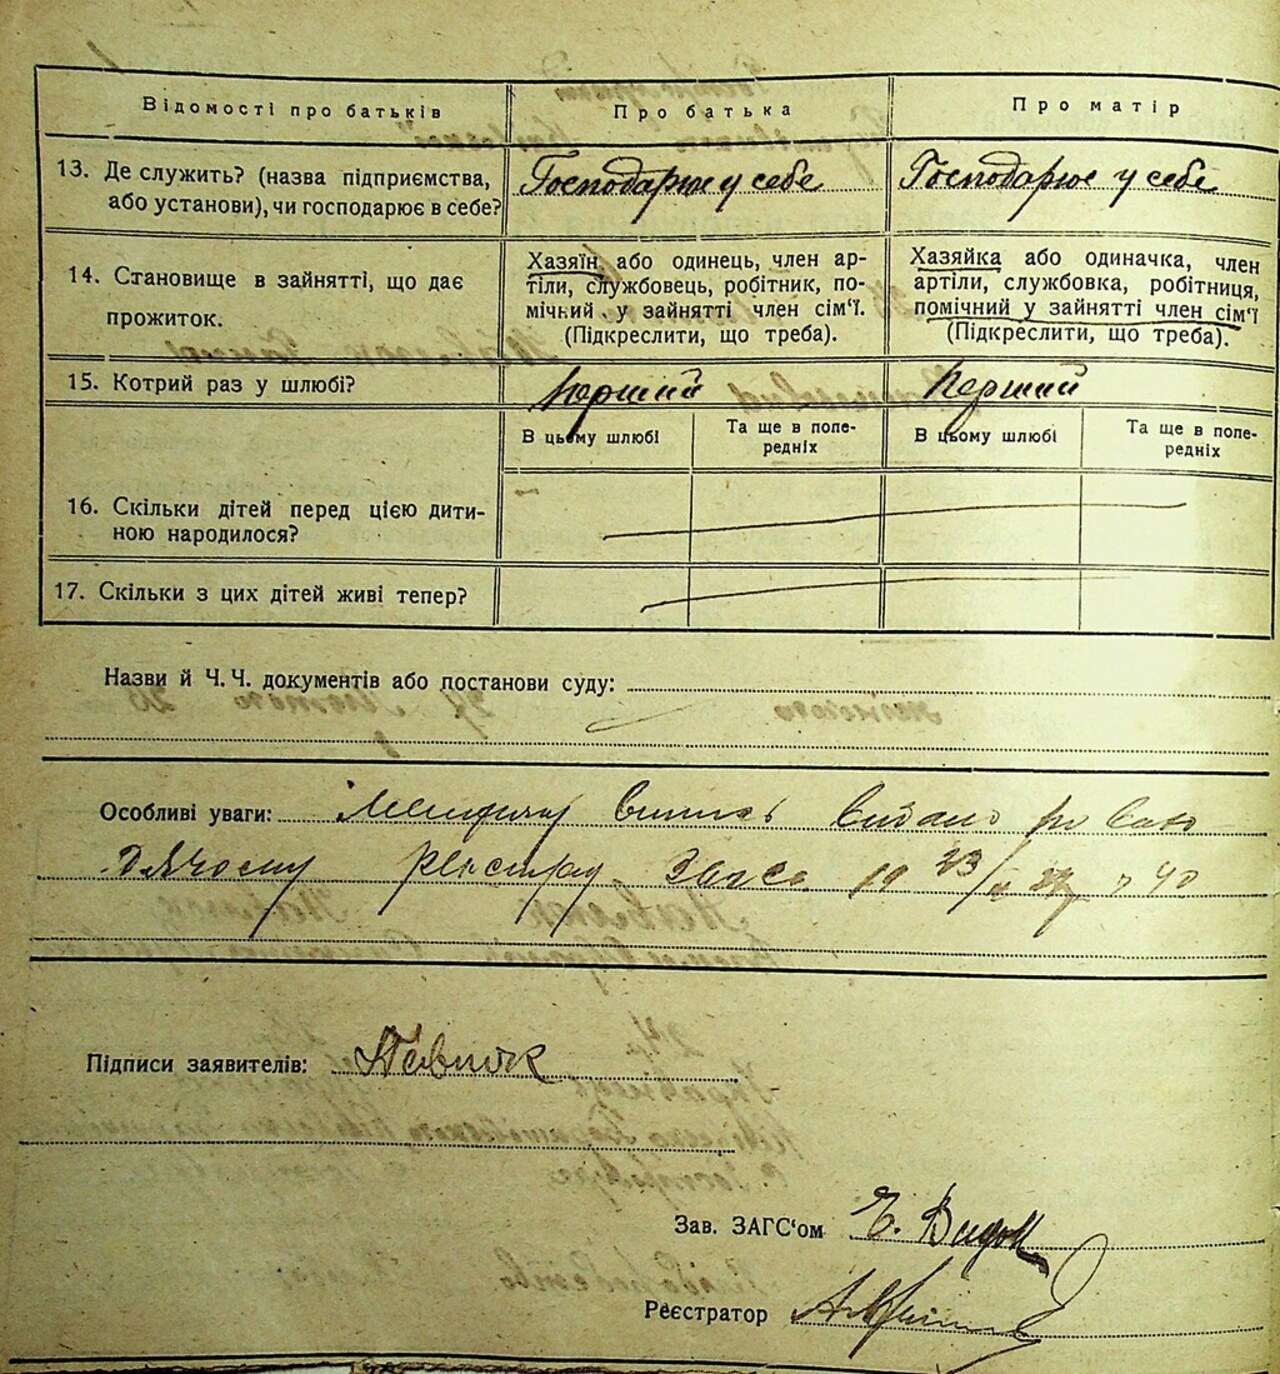 Відомості про батьків
Про батька
Про матір
13. Де служить? (назва підприємства,
або установи), чи господарює в себе?
Господарює у себе
Господарює у себе
14. Становище в зайнятті, що дає
прожиток.
Хазяїн, або одинець, член ар-
тіли, службовець, робітник, по-
мічний у зайнятті член сім'ї.
(Підкреслити, що треба).
Хазяйка або одиначка, член
артіли, службовка, робітниця,
помічний у зайнятті член сім'ї
(Підкреслити, що треба).
15. Котрий раз у шлюбі?
Перший
Перший
В цьому шлюбі
Та ще в попе-
редніх
В цьому шлюбі
Та ще в попе-
редніх
16. Скільки дітей перед цією дити-
ною народилося?
17. Скільки з цих дітей живі тепер?
Назви й Ч. Ч. документів або постанови суду:
Особливі уваги: видано
19 23
Підписи заявителів:
Зав. ЗАГС'ом
Реєстратор